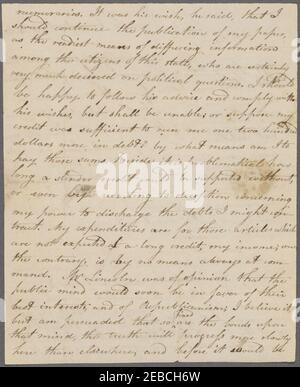 memoraries. It was his wish, he said, that I
should continue the publication of my paper,
as the readiest means of diffusing information
among the citizens of this state, who are certainly
very much deceived on political questions. I should
be happy to follow his advice and comply with
his wishes, but shall be unable; or suppose my
credit was sufficient to run me one two hundred
dollars more in debt? by what means am I to
pay those sums besides? it is problematical how
long a slender credit could be supported without,
or even
my power to discharge the debts I might con-
tract. My expenditures are for those articles which
are not expected of a long credit; my income, on
the contrary, is by no means always at com-
mand. Mr. Lincoln was of opinion that the
public mind would soon be in favor of their
best interests, and of Republicanism; I believe it
but am persuaded that so are the bonds upon
that mind, the truth will progress more slowly
here than elsewhere, and before it would be
alamy
Image ID: 2EBCH6W
www.alamy.com